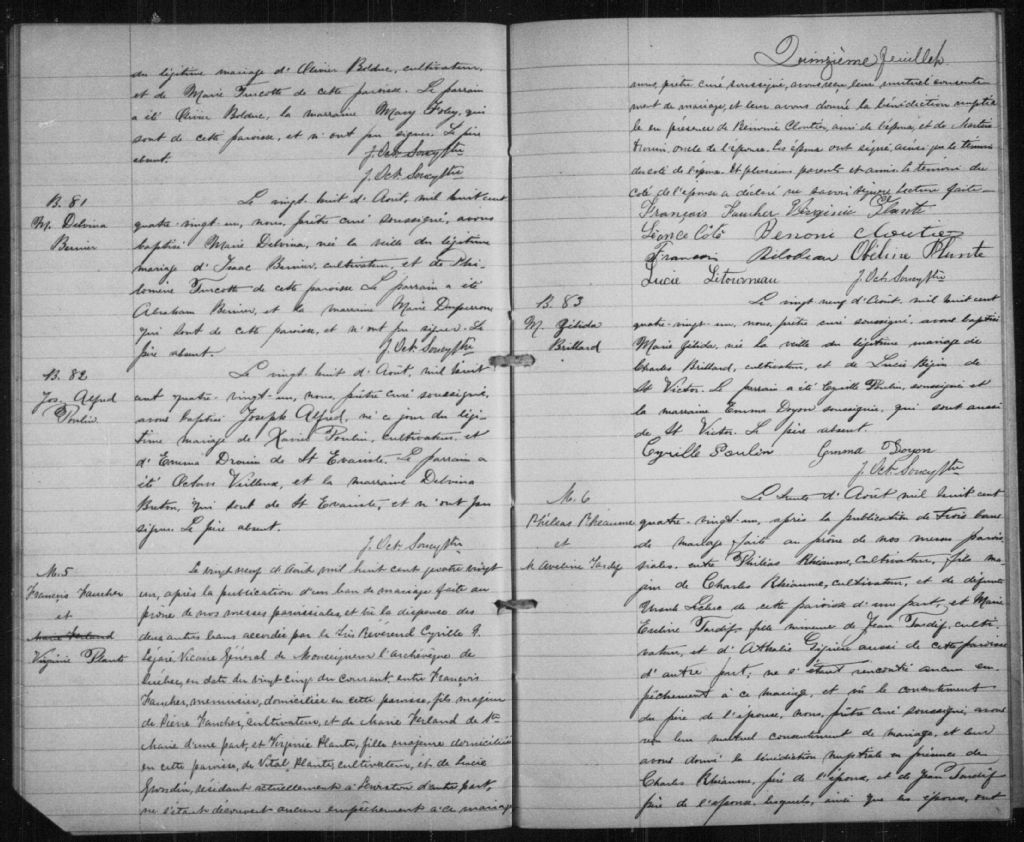 du légitime mariage d'Olivier Bolduc, cultivateur,
et de Marie Turcotte de cette paroisse. Le parrain
a été Olivier Bolduc, la marraine Mary Foley, qui
sont de cette paroisse, et n'ont pu signer. Le père
absent. J. Oct. Soucy Ptre
J. Oct. Soucy Ptre
B. 81
M. Delvina
Bernier
Le vingt-huit d'Août, mil huit cent
quatre-vingt-un, nous, prêtre curé soussigné, avons
baptisé Marie Delvina, née la veille du légitime
mariage d'Isaac Bernier, cultivateur, et de Phi-
lomène Turcotte de cette paroisse. Le parrain a été
Abraham Bernier, et la marraine Marie
qui sont de cette paroisse, et n'ont pu signer. Le
père absent. J. Oct. Soucy Ptre
B. 82
Jos. Alfred
Poulin
Le vingt-huit d'Août, mil huit
cent quatre-vingt-un, nous, prêtre curé soussigné,
avons baptisé Joseph Alfred, né ce jour du légi-
time mariage de Xavier Poulin, cultivateur, et
d'Emma Drouin de St Evariste. Le parrain a
été Octave Veilleux, et la marraine Delvina
Breton, qui sont de St Evariste, et n'ont pu
signer. Le père absent.
J. Oct. Soucy Ptre
M. 5
François Faucher
et
Marie Ferland
Virginie Plante
Le vingt neuf d'Août mil huit cent quatre vingt
un, après la publication d'un ban de mariage faite au
prône de nos messes paroissiales, et vu la dispense des
deux autres bans accordée par le Très Révérend Cyrille E.
Légaré Vicaire Général de Monseigneur l'archevêque de
Québec, en date du vingt cinq du courant, entre François
Faucher, menuisier, domicilié en cette paroisse, fils majeur
de Pierre Faucher, cultivateur, et de Marie Ferland de Ste
Marie d'une part, et Virginie Plante, fille majeure domiciliée
en cette paroisse, de Vital Plante, cultivateur, et de Lucie
Grondin, résidant actuellement à d'autre part,
ne s'étant découvert aucun empêchement à ce mariage
Quinzième feuillet
nous prêtre curé soussigné, avons reçu leur mutuel consente-
ment de mariage, et leur avons donné la bénédiction nuptia-
le en présence de Benonie Cloutier, ami de l'époux, et de
oncle de l'épouse. Les époux ont signé, ainsi que le témoin
du côté de l'époux. Et plusieurs parents et amis. le témoin du
côté de l'épouse a déclaré ne savoir signer. lecture faite.
François Faucher Virginie Plante
Léonce Côté Benoni Cloutier
François Bilodeau Obéline Plante
Lucie Letourneau J. Oct. Soucy Ptre
B. 83
M. Zélida
Brillard
Le vingt neuf d'Août, mil huit cent
quatre-vingt-un, nous, prêtre curé soussigné, avons baptisé
Marie Zélida, née la veille du légitime mariage de
Charles Brillard, cultivateur, et de Lucie Bégin de
St Victor. Le parrain a été Cyrille Poulin, soussigné et
la marraine Emma Doyon soussignée, qui sont aussi
de St Victor. Le père absent.
Cyrille Poulin Emma Doyon
J. Oct. Soucy Ptre
M. 6
Philéas Rhéaume
et
M. Aveline Tardif
Le trente d'Août mil huit cent
quatre-vingt-un, après la publication de trois bans
de mariage faite au prône de nos messes parois-
siales, entre Philéas Rhéaume, cultivateur, fils ma-
jeur de Charles Rhéaume, cultivateur, et de défunte
Ursule Leclerc de cette paroisse d'une part, et Marie
Eveline Tardif, fille mineure de Jean Tardif, culti-
vateur, et d'Athalie Giguère aussi de cette paroisse
d'autre part, ne s'étant rencontré aucun em-
pêchement à ce mariage, et vu le consentement
du père de l'épouse, nous, prêtre curé soussigné, avons
reçu leur mutuel consentement de mariage, et leur
avons donné la bénédiction nuptiale en présence de
Charles Rhéaume, père de l'époux, et de Jean Tardif
père de l'épouse, lesquels, ainsi que les époux, ont